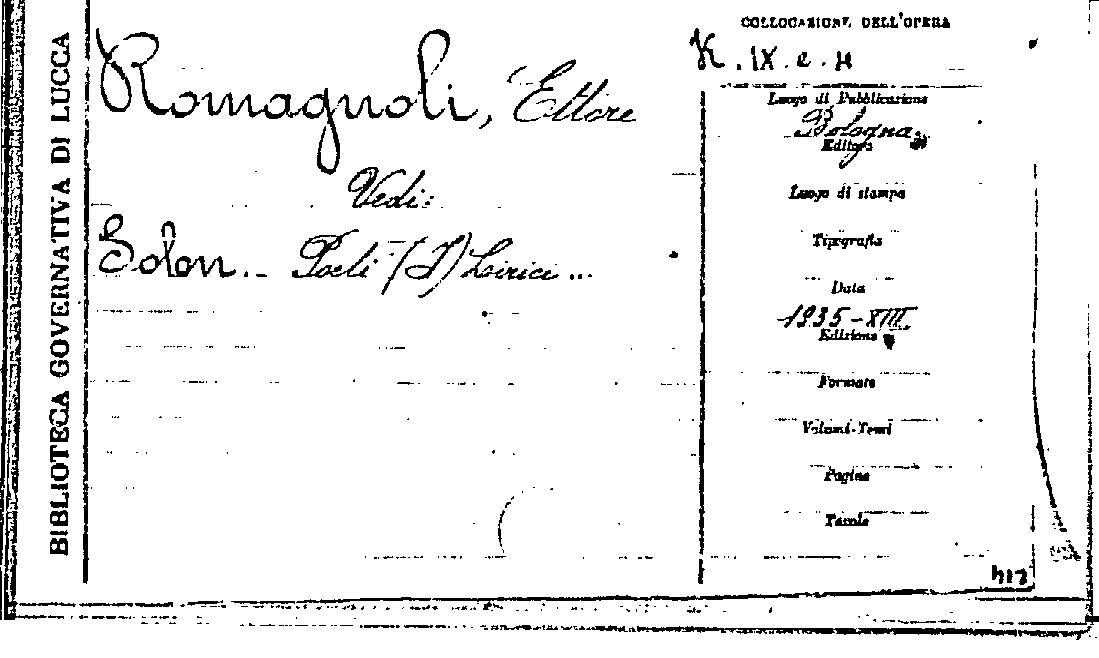 BIBLIOTECA GOVERNATIVA DI LUCCA
Romagnoli, Ettore
Vedi:
Solon.- Poeti (I) Lirici ...
COLLOCAZIONE DELL'OPERA
K. IX. e.
Luogo di Pubblicazione
Bologna
Editore
Luogo di stampa
Tipografia
Data
1935-XIII
Edizione
Formato
Volumi-Tomi
Pagine
Tavole